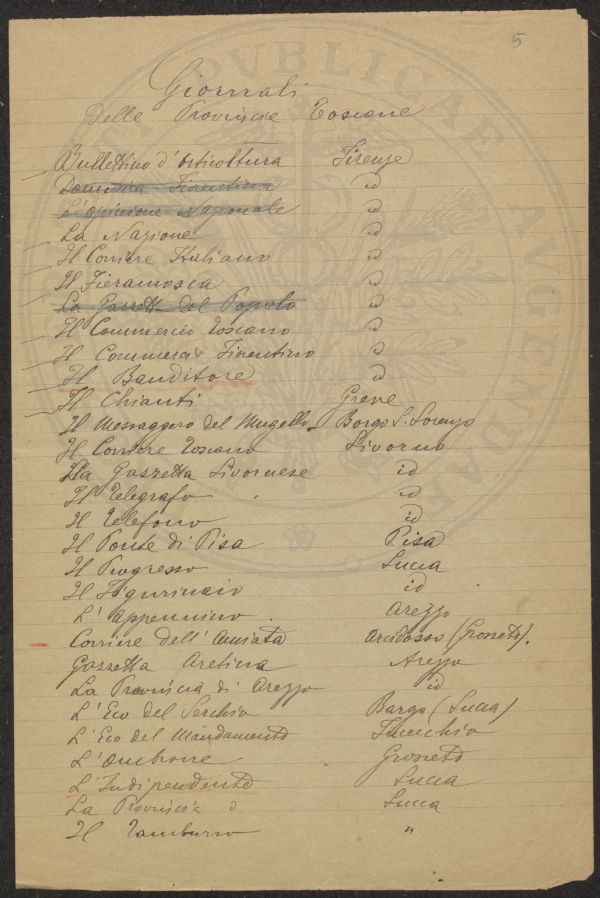 5
Giornali
delle Provincie Toscane
Bullettino d'orticoltura Firenze
Domenica Fiorentina id
L'Opinione Nazionale id
La Nazione id
Il Corriere Italiano id
Il Fieramosca id
La Gazzetta del Popolo id
Il Commercio Toscano id
Il Commercio Fiorentino id
Il Banditore id
Il Chianti Greve
Il Messaggero del Mugello Borgo S. Lorenzo
Il Corriere Toscano Livorno
La Gazzetta Livornese id
Il Telegrafo id
Il Telefono id
Il Ponte di Pisa Pisa
Il Progresso Lucca
Il Figurinaio id
L'Appennino Arezzo
Corriere dell'Amiata Arcidosso (Grosseto).
Gazzetta Aretina Arezzo
La Provincia di Arezzo id
L'Eco del Serchio Barga (Lucca)
L'Eco del Mandamento Fucecchio
L'Ombrone Grosseto
L'Indipendente Lucca
La Provincia Lucca
Il Tamburro "